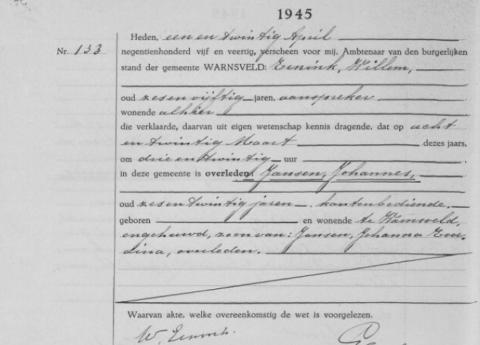 1945
Nr. 133
Heden, een en twintig April
negentienhonderd vijf en veertig, verscheen voor mij, Ambtenaar van den burgerlijken
stand der gemeente WARNSVELD: Eenink, Willem,
oud zesenvijftig jaren, aanspreker
wonende alhier
die verklaarde, daarvan uit eigen wetenschap kennis dragende, dat op acht
en twintig Maart dezes jaars,
om drie en twintig uur
in deze gemeente is overleden: Jansen, Johannes,
oud zes en twintig jaren, kantoorbediende,
geboren en wonende te Warnsveld,
ongehuwd, zoon van: Jansen, Johanna
dina, overleden.
Waarvan akte, welke overeenkomstig de wet is voorgelezen.
W. Eenink.